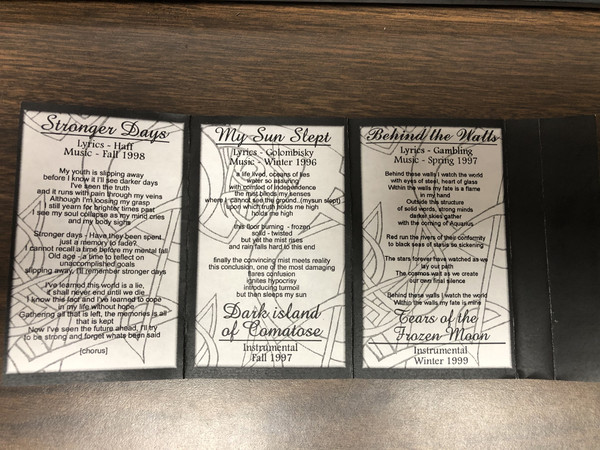 Stronger Days
Lyrics - Haff
Music - Fall 1998
My youth is slipping away
before I know it I'll see darker days
I've seen the truth
and it runs with pain through my veins
Although I'm loosing my grasp
I still yearn for brighter times past
I see my soul collapse as my mind cries
and my body sighs
Stronger days - Have they been spent
just a memory to fade?
I cannot recall a time before my mental fall
Old age - a time to reflect on
unaccomplished goals
slipping away, I'll remember stronger days
I've learned this world is a lie,
it shall never end until we die
I know this fact and I've learned to cope
in my life without hope
Gathering all that is left, the memories is all
that is kept
Now I've seen the future ahead, I'll try
to be strong and forget whats been said
[chorus]
My Sun Slept
Lyrics - Golombisky
Music - Winter 1996
a life lived, oceans of lies
water so assuring
with comfort of independence
the mist blinds my senses
where I cannot see the ground. (mysun slept)
upon which truth holds me high
holds me high
this floor burning - frozen
solid - twisted
but yet the mist rises
and rain falls hard to this end
finally the convincing mist meets reality
this conclusion, one of the most damaging
flares confusion
ignites hypocrisy
introducing turmoil
but then sleeps my sun
Dark island
of Comatose
Instrumental
Fall 1997
Behind the Walls
Lyrics - Gambling
Music - Spring 1997
Behind these walls I watch the world
with eyes of steel, heart of glass
Within the walls my fate is a flame
in my hand
Outside this structure
of solid words, strong minds
darker skies gather
with the coming of Aquarius
Red run the rivers of their conformity
to black seas of status so sickening
The stars forever have watched as we
lay out path
The cosmos wait as we create
our own final silence
Behind these walls I watch the world
Within the walls my fate is mine
Tears of the
Frozen Moon
Instrumental
Winter 1999